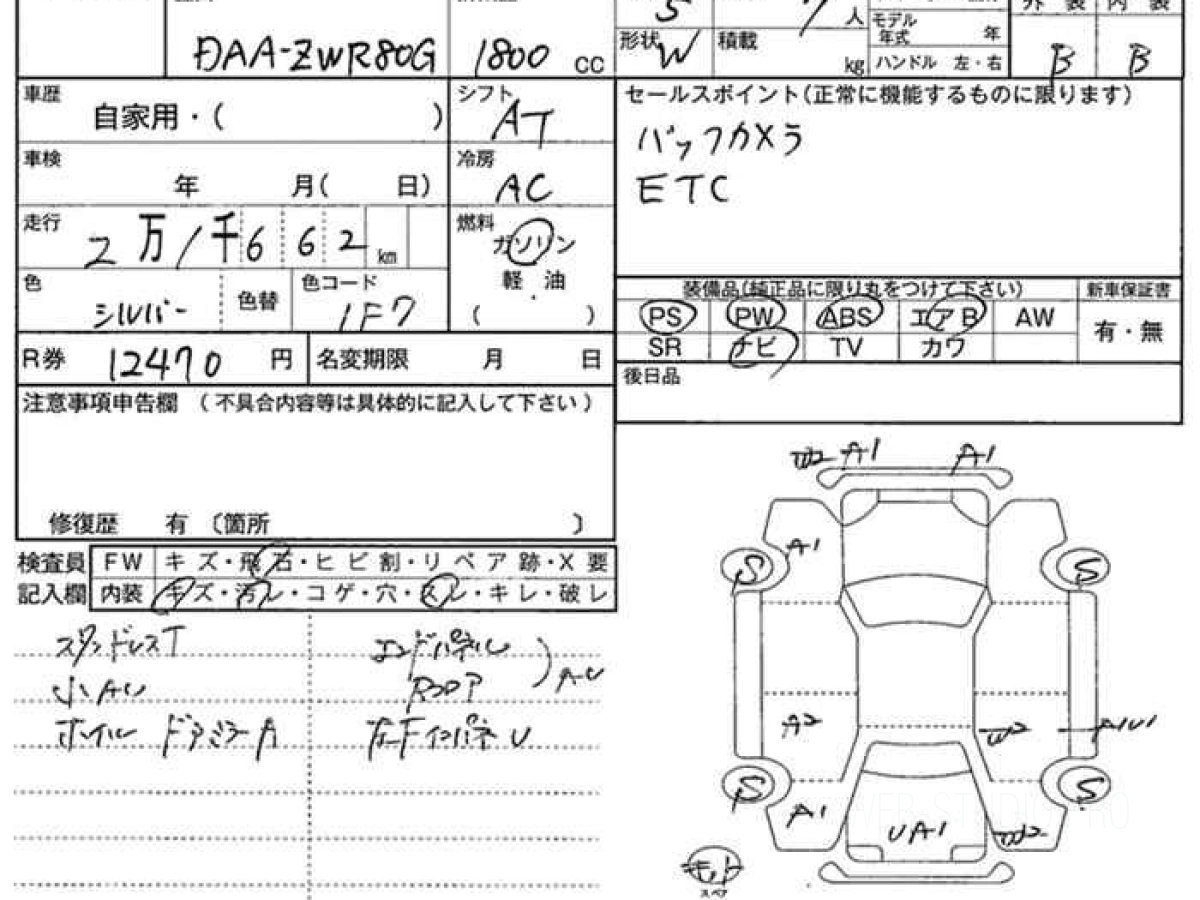 DAA-ZWR80G 1800 cc
5 人 モデル年式 年
形状 W 積載 kg ハンドル 左・右 B B
車歴 自家用・( )
シフト AT
セールスポイント(正常に機能するものに限ります)
バックカメラ
ETC
車検 年 月( 日)
冷房 AC
走行 2万1千662km
燃料 ガソリン
軽油
( )
色 シルバー 色替 色コード 1F7
装備品(純正品に限り丸をつけて下さい) 新車保証書
PS PW ABS エアB AW 有・無
SR ナビ TV カワ
R券 12470 円 名変期限 月 日
後日品
注意事項申告欄 (不具合内容等は具体的に記入して下さい)
修復歴 有 〔箇所 〕
検査員 FW キズ・飛石・ヒビ割・リペア跡・X要
記入欄 内装 キズ・汚レ・コゲ・穴・スレ・キレ・破レ
スタッドレスT
小AU
ホイル ドアミラーA
エンドパネル
Rフロア
AU
左Fインパネ U
W2 A1 A1
A1
S S
A2 W2 A1U1
S S
A1 UA1 W2
キット
スペア